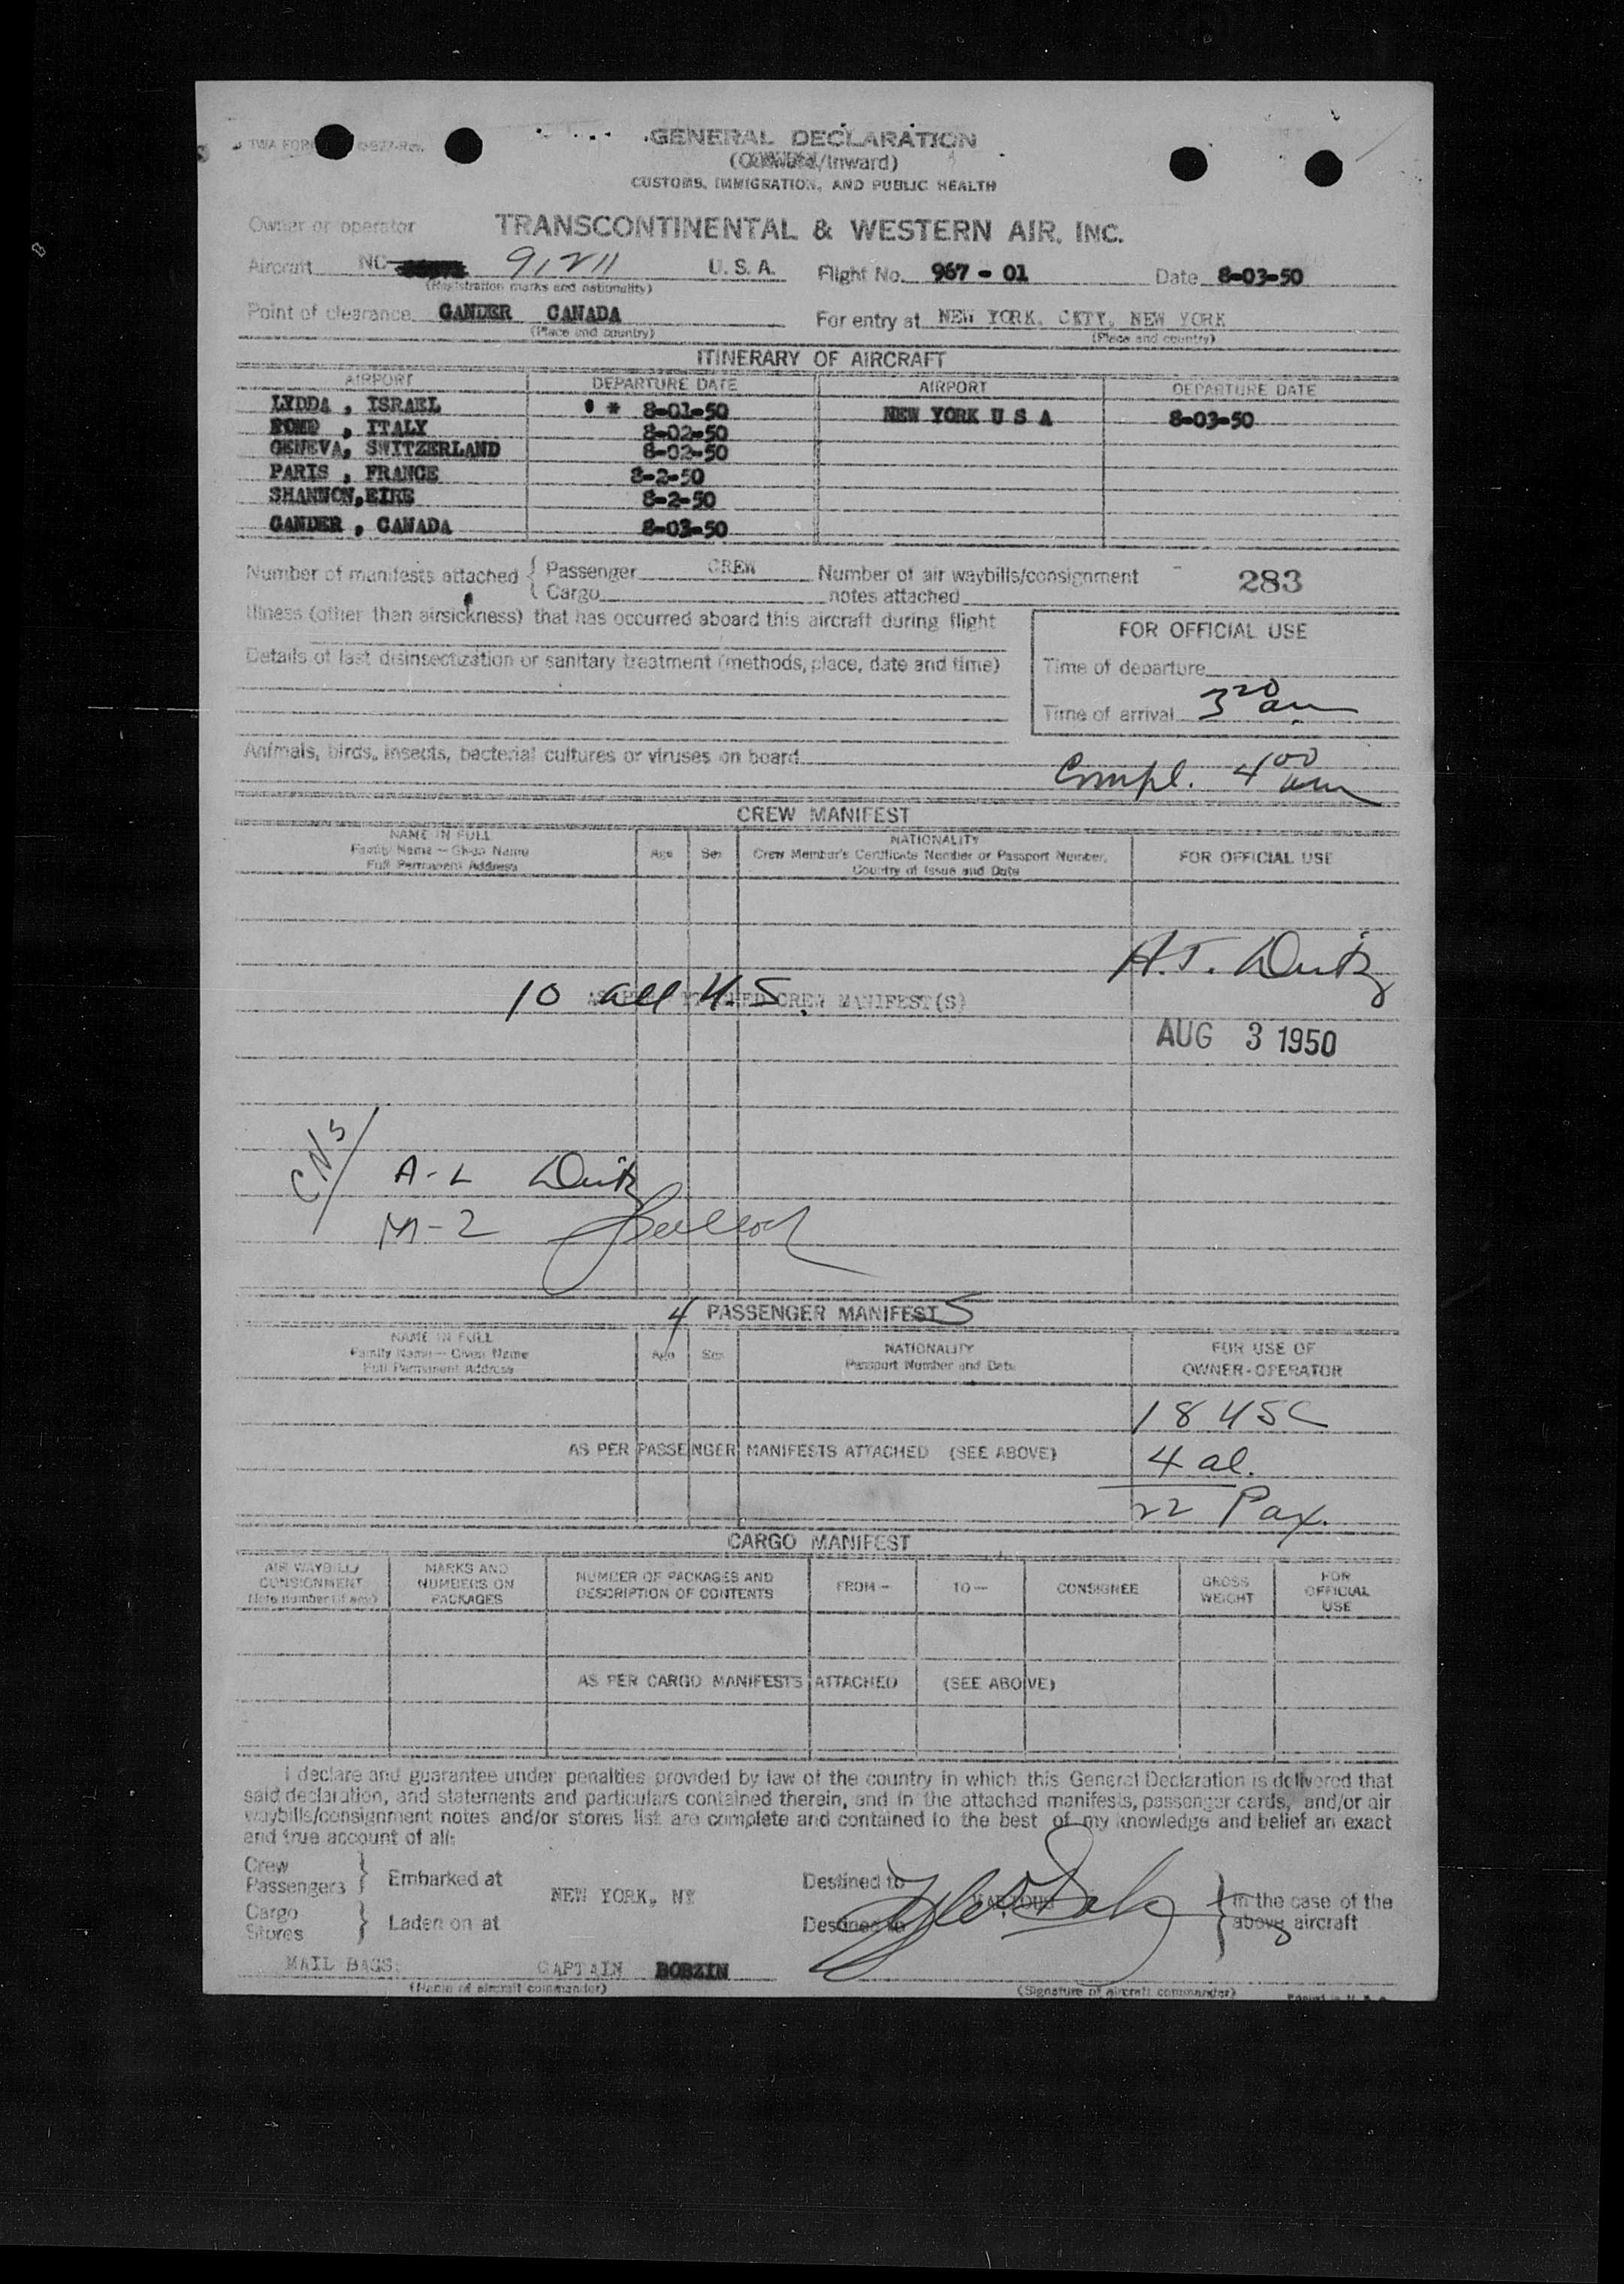 TWA FORM
GENERAL DECLARATION
(Outward/Inward)
CUSTOMS, IMMIGRATION, AND PUBLIC HEALTH
Owner or operator TRANSCONTINENTAL & WESTERN AIR, INC.
Aircraft NC 91211 U. S. A. Flight No. 967 - 01 Date 8-03-50
(Registration marks and nationality)
Point of clearance GANDER CANADA For entry at NEW YORK, CITY, NEW YORK
(Place and country) (Place and country)
ITINERARY OF AIRCRAFT
AIRPORT DEPARTURE DATE AIRPORT DEPARTURE DATE
LYDDA , ISRAEL * 8-01-50 NEW YORK U S A 8-03-50
ROME , ITALY 8-02-50
GENEVA, SWITZERLAND 8-02-50
PARIS , FRANCE 8-2-50
SHANNON,EIRE 8-2-50
GANDER , CANADA 8-03-50
Number of manifests attached { Passenger CREW Number of air waybills/consignment 283
Cargo notes attached
Illness (other than airsickness) that has occurred aboard this aircraft during flight
FOR OFFICIAL USE
Details of last disinsectization or sanitary treatment (methods, place, date and time)
Time of departure
Time of arrival 3 20 am
Animals, birds, insects, bacterial cultures or viruses on board
Compl. 4 00 am
CREW MANIFEST
NAME IN FULL
Family Name — Given Name
Full Permanent Address
Age Sex
NATIONALITY
Crew Member's Certificate Number or Passport Number,
Country of Issue and Date
FOR OFFICIAL USE
10 all U.S.
CREW MANIFEST(S)
AUG 3 1950
A-L
M-2
4 PASSENGER MANIFESTS
NAME IN FULL
Family Name — Given Name
Full Permanent Address
Age Sex
NATIONALITY
Passport Number and Date
FOR USE OF
OWNER-OPERATOR
18 USC
AS PER PASSENGER MANIFESTS ATTACHED (SEE ABOVE)
4 al.
22 Pax.
CARGO MANIFEST
AIR WAYBILL/
CONSIGNMENT
Note number (if any)
MARKS AND
NUMBERS ON
PACKAGES
NUMBER OF PACKAGES AND
DESCRIPTION OF CONTENTS
FROM—
TO—
CONSIGNEE
GROSS
WEIGHT
FOR
OFFICIAL
USE
AS PER CARGO MANIFESTS ATTACHED (SEE ABOVE)
I declare and guarantee under penalties provided by law of the country in which this General Declaration is delivered that
said declaration, and statements and particulars contained therein, and in the attached manifests, passenger cards, and/or air
waybills/consignment notes and/or stores list are complete and contained to the best of my knowledge and belief an exact
and true account of all:
Crew
Passengers } Embarked at Destined to
NEW YORK, NY
in the case of the
above aircraft
Cargo
Stores } Laden on at Destined to
MAIL BAGS: CAPTAIN BOBZIN
(Name of aircraft commander) (Signature of aircraft commander)